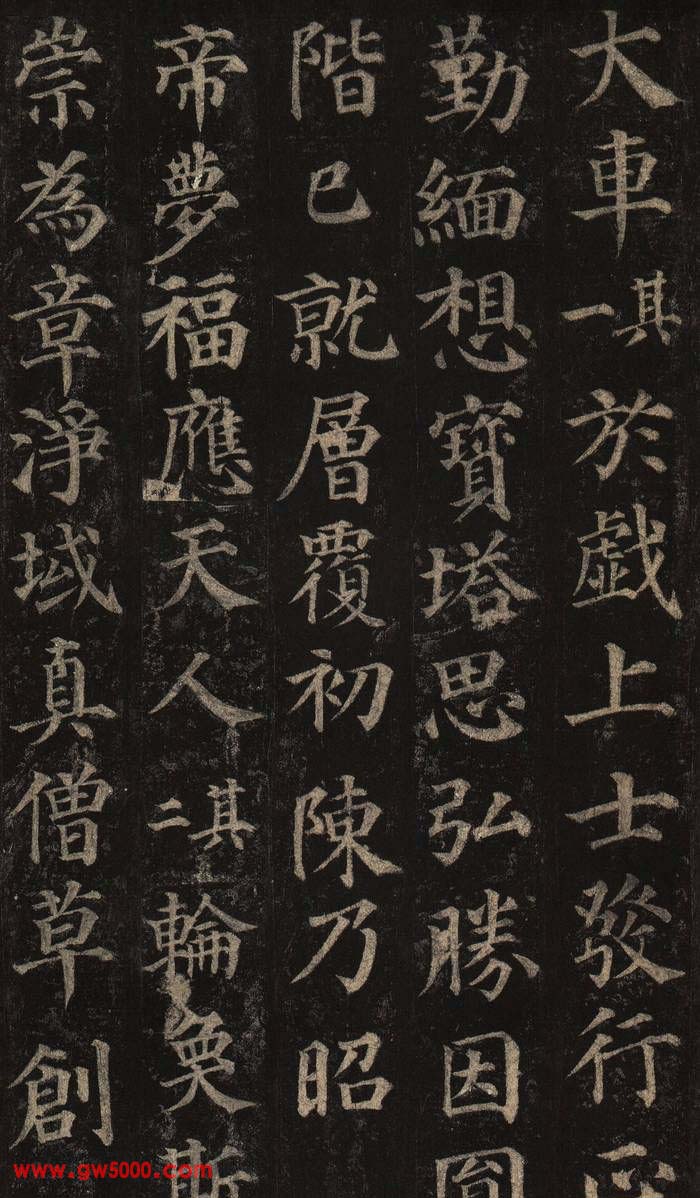 大車其一於戲上士發行正
勤緬想寶塔思弘勝因圎
階已就層覆初陳乃昭
帝夢福應天人其二輪奐斯
崇為章淨域真僧草創
www.gw5000.com